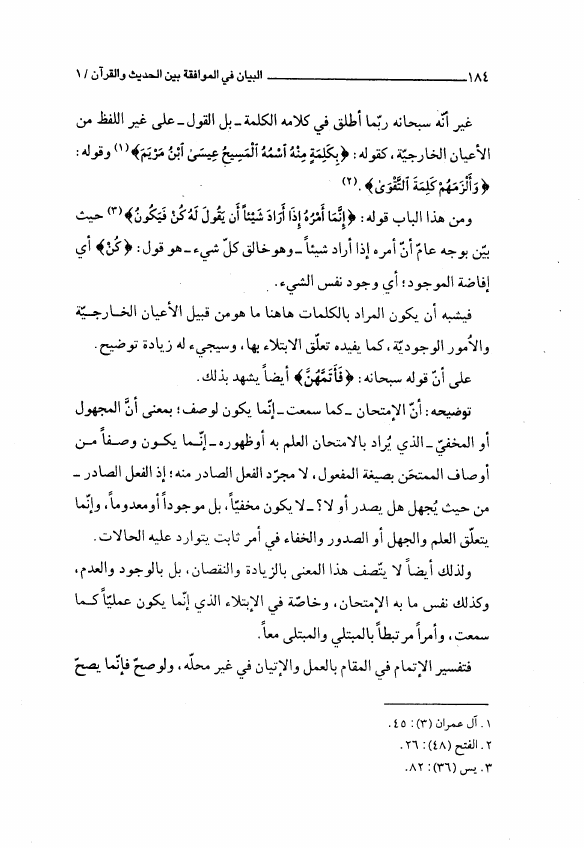 ١٨٤ــــــ البيان في الموافقة بين الحديث والقرآن / ١
غير أنّه سبحانه ربّما أطلق في كلامه الكلمة ـ بل القول ـ على غير اللفظ من
الأعيان الخارجيّة، كقوله: ﴿بِكَلِمَةٍ مِنْهُ ٱسْمُهُ ٱلْمَسِيحُ عِيسَىٰ ٱبْنُ مَرْيَمَ﴾(١) وقوله:
﴿وَأَلْزَمَهُمْ كَلِمَةَ ٱلتَّقْوَىٰ﴾.(٢)
ومن هذا الباب قوله: ﴿إِنَّمَا أَمْرُهُ إِذَا أَرَادَ شَيْئاً أَن يَقُولَ لَهُ كُنْ فَيَكُونُ﴾(٣) حيث
بيّن بوجه عامّ أنّ أمره إذا أراد شيئاً ـ وهو خالق كلّ شيء ـ هو قول: ﴿كُنْ﴾ أي
إفاضة الموجود؛ أي وجود نفس الشيء.
فيشبه أن يكون المراد بالكلمات هاهنا ما هو من قبيل الأعيان الخارجـيّة
والأمور الوجوديّة، كما يفيده تعلّق الابتلاء بها، وسيجيء له زيادة توضيح.
على أنّ قوله سبحانه: ﴿فَأَتَمَّهُنَّ﴾ أيضاً يشهد بذلك.
توضيحه: أنّ الإمتحان ـ كما سمعت ـ إنّما يكون لوصف؛ بمعنى أنَّ المجهول
أو المخفيّ ـ الذي يُراد بالامتحان العلم به أو ظهوره ـ إنّـما يكـون وصفـاً مـن
أوصاف الممتحَن بصيغة المفعول، لا مجرّد الفعل الصادر منه؛ إذ الفعل الصادر ـ
من حيث يُجهل هل يصدر أو لا؟ ـ لا يكون مخفيّاً، بل موجوداً أو معدوماً، وإنّما
يتعلّق العلم والجهل أو الصدور والخفاء في أمر ثابت يتوارد عليه الحالات.
ولذلك أيضاً لا يتّصف هذا المعنى بالزيادة والنقصان، بل بالوجود والعدم،
وكذلك نفس ما به الإمتحان، وخاصّة في الإبتلاء الذي إنّما يكون عمليّاً كـما
سمعت، وأمراً مرتبطاً بالمبتلي والمبتلى معاً.
فتفسير الإتمام في المقام بالعمل والإتيان في غير محلّه، ولو صحّ فإنّما يصحّ
١. آل عمران (٣): ٤٥.
٢. الفتح (٤٨): ٢٦.
٣. يس (٣٦): ٨٢.